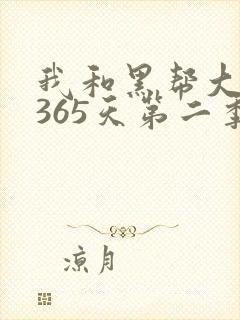 我和黑帮大
365天第二季
凉月